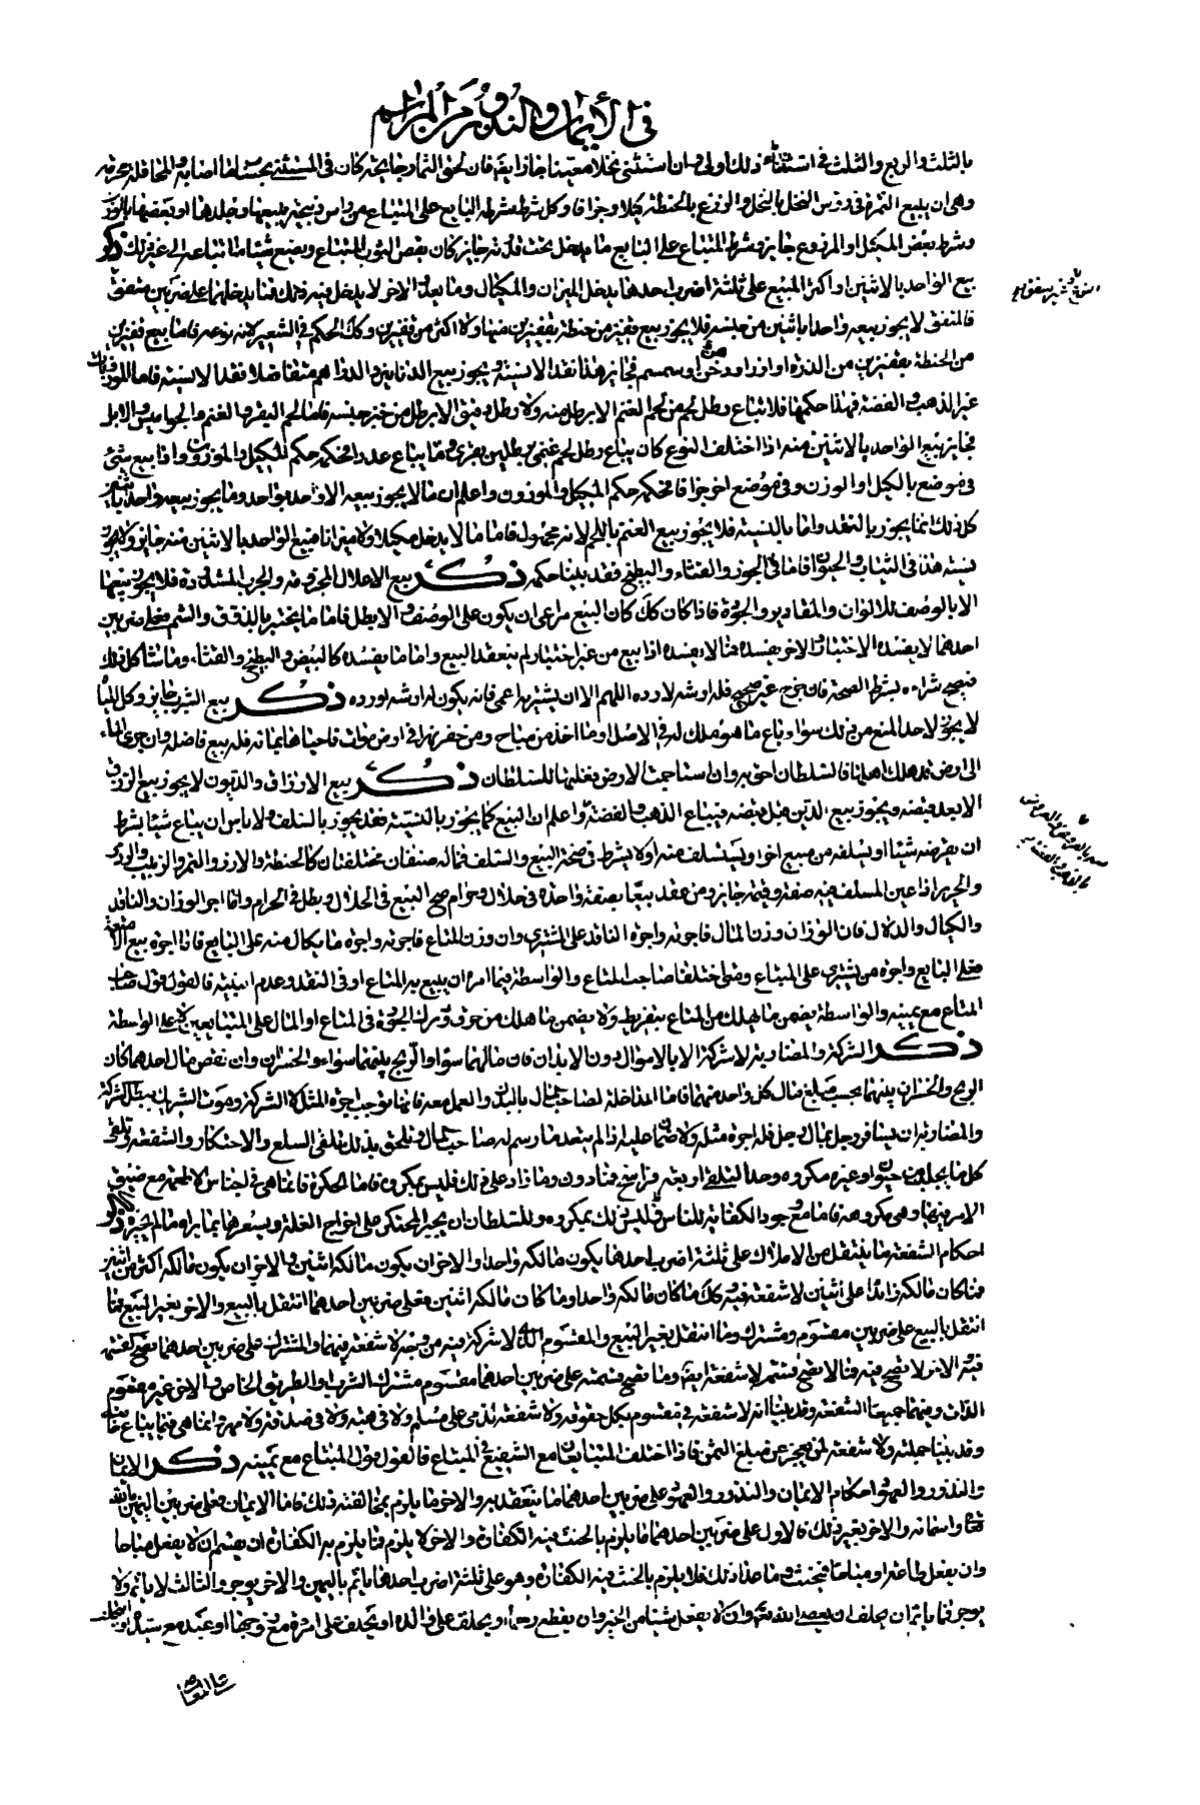 في الأيمان والنذور من المراسم
بالثلث والربع والثلث في استثناء ذلك اولى وان استثنى نخلا معينا جاز ايضا فان لحق الثمار جايحة كان في المستثنى بحسب ما اصابه والمحاقلة محرمة
وهي ان يبيع الثمرة في رؤس النخل بالنخل والزرع بالحنطة كيلا وجزافا وكل شرط شرطه البايع على المبتاع من راس ذبيحة يبيعها وجلدها او بعضها بالوزن
وشرط بعض المكيل او المزروع جايز وشرط المبتاع على البايع ما يدخل تحت قدرته جايز كان يقص الثوب المبتاع ويصبغ شيئا ما ابتاعه الى غير ذلك ذكر
بيع الواحد بالاثنين او اكثر المبيع على ثلثة اضرب احدها يدخل الميزان والمكيال وما يعد الاخر لا يدخل فيه ذلك فما يدخلهما على ضربين متفق
فالمتفق لا يجوز بيعه واحدا باثنين من جنسه فلا يجوز بيع قفيز من حنطة بقفيزين منها ولا اكثر من قفيزين وكك الحكم في الشعير لانه نوعه فاما بيع قفيزين
من الحنطة بقفيزين من الذرة او ارز او دخن او سمسم فجايز هذا نقدا لا نسية ويجوز بيع الدنانير والدراهم متفاضلا نقدا لا نسية فاما الموزونات
غير الذهب والفضة فهذا حكمها فلا تباع رطل لحم من لحم الغنم الا برطل منه ولا رطل دقيق الا برطل من خبز جنسه فاما لحم البقر والغنم والجواميس والابل
فجايز بيع الواحد بالاثنين منه اذا اختلف النوع كان يباع رطل لحم غنمي برطلين بقري وما يباع عددا فحكمه حكم المكيل والموزون واذا بيع شئ
في موضع بالكيل او الوزن وفي موضع اخر جزافا فحكمه حكم المكيل والموزون واعلم ان ما لا يجوز بيعه الا واحد بواحد وما يجوز بيعه واحدا باثنين
كل ذلك انما يجوز بالنقد واما بالنسية فلا يجوز بيع الغنم باللحم لانه مجهول فاما ما لا يدخل مكيلا ولا ميزانا فبيع الواحد بالاثنين منه جايز ولا يجوز
نسية هذا في الثياب والحيوان فاما في الجوز والقثاء والبطيخ فقد بينا حكمه ذكر بيع الاعدال المحزومة والجرب المشدودة فلا يجوز بيعها
الا بالوصف للالوان والمقادير والجودة فاذا كان كك كان البيع مراعى ان يكون على الوصف والا بطل فاما ما يختبر بالذوق والشم فعلى ضربين
احدهما لا يفسده الاختبار والاخر يفسده فما لا يفسده اذا بيع من غير اختبار لم ينعقد البيع واما ما يفسده كالبيض والبطيخ والقثاء وما شاكل ذلك
فيصح شراءه بشرط الصحة فان خرج غير صحيح فله ارشه لا رده اللهم الا ان يشتريه اعمى فانه يكون له ارشه او رده ذكر بيع الشرب جايز وكل الماء
لا يجوز لاحد المنع من ذلك سواء باع ما هو ملك له في الاصل او ما اخذ من مباح ومن حفر نهرا في ارض موات فاحياها بمائه فله بيع فاضله وان جرى الماء
الى ارض قد هلك اهلها فالسلطان احق به وان استاجم الارض فغلتها للسلطان ذكر بيع الارزاق والديون لا يجوز بيع الرزق
الا بعد قبضه ويجوز بيع الدين قبل قبضه فيباع الذهب والفضة واعلم ان البيع كما يجوز بالنسية فقد يجوز بالسلف ولا باس ان يبتاع شيئا بشرط
ان يقرضه شيئا او يسلفه من مبيع اخر او يستسلف منه او لا يشرط في صحة البيع والسلف فماله صنفان مختلفتان كالحنطة والارز والتمر والزبيب والردئ
والحرير اذا عين المسلف فيه صفة وقيمة جايز ومن عقد بيعا بصفقة واحدة في حلال وحرام صح البيع في الحلال وبطل في الحرام واما اجر الوزان والناقد
والكيال والدلال فان الوزان وزن المال فاجرته واجرة الناقد على المشتري وان وزن المتاع فاجرته واجرة ما يكال منه على البايع فاما اجرة بيع الامتعة
فعلى البايع واجرة من يشتري على المبتاع ومتى اختلف صاحب المتاع والواسطة فيما امره ان يبيع به المتاع او في النقد وعدم البينة فالقول قول صاحب
المتاع مع يمينه والواسطة يضمن ما يهلك من المتاع بتفريط ولا يضمن ما هلك من حرز ودرك الجودة في المتاع او المال على المتبايعين لا على الواسطة
ذكر الشركة والمضاربة لا شركة الا بالاموال دون الابدان فان مالهما سواء والربح بينهما سواء والخسران وان نقص مال احدهما كان
الربح والخسران بينهما بحسب مبلغ مال كل واحد منهما فاما المداخلة لصاحب المال بالبدن والعمل معه فانما توجب اجرة المثل لا الشركة وموت الشريك يبطل الشركة
والمضاربة ان يسافر رجل بمال رجل فله اجرة مثله ولا ضمان عليه اذا لم يتعد ما رسم له صاحب المال ويلحق بذلك تلقي السلع والاحتكار والشفعة وتلقي
كل ما يجلب من حيوان او غيره مكروه وحد التلقي اربعة فراسخ فما دون وما زاد على ذلك فليس بمكروه فاما الحكرة فانما هي في اجناس الاطعمة مع ضيق
الامر فيها وهي مكروهة فاما مع وجود الكفاية للناس فليس ذلك بمكروه وللسلطان ان يجبر المحتكر على اخراج الغلة ويسعرها بما يراه ما لم يخسره ذكر
احكام الشفعة ما ينتقل من الاملاك على ثلثة اضرب احدها يكون مالكه واحدا والاخر ان يكون مالكه اثنين والاخر ان يكون مالكه اكثر من اثنين
فما كان مالكه زائدا على اثنين لا شفعة فيه وكك ما كان مالكه واحدا وما كان مالكه اثنين فعلى ضربين احدهما انتقل بالبيع والاخر بغير البيع فما
انتقل بالبيع على ضربين مقسوم ومشترك وما انتقل بغير البيع والمقسوم الذي لا شركة فيه من وجه لا شفعة فيهما والمشترك على ضربين احدهما تصح قسمته
فيه الاخر لا تصح فيه فما لا تصح قسمته لا شفعة ايضا وما تصح قسمته على ضربين احدهما مقسوم مشترك الشرب والطريق الخاص والاخر غير مقسوم
الذات وفيهما جميعا الشفعة وقد بينا انه لا شفعة في مقسوم بكل حقوقه ولا شفعة لذمي على مسلم ولا في هبة ولا في صدقة ولا مهر وانما هي فيما يباع خاصة
وقد بينا جملته ولا شفعة لمن يعجز عن مبلغ الثمن فاذا اختلف المتبايعان مع الشفيع في المبتاع فالقول قول المبتاع مع يمينه ذكر الايمان
والنذور والعهود احكام الايمان والنذور والعهود على ضربين احدهما ما ينعقد به والاخر ما يلزم بمخالفته ذلك فاما الايمان فعلى ضربين اليمين بالله
تعالى واسمائه والاخر بغير ذلك فالاول على ضربين احدهما ما يلزم بالحنث فيه الكفارة والاخر لا يلزم فما يلزم به الكفارة ان يقسم ان لا يفعل مباحا
وان يفعل طاعة او مباحا فيحنث وما عدا ذلك فلا يلزم بالحنث فيه الكفارة وهو على ثلثة اضرب احدها ياثم باليمين والاخر يوجر والثالث لا ياثم ولا
يوجر فما ياثم ان يحلف ان يعصي الله تعالى وان لا يفعل شيئا من الخير وان يقطع رحما او يحلف على والده او يحلف على امراة مع زوجها او عبد مع سيده